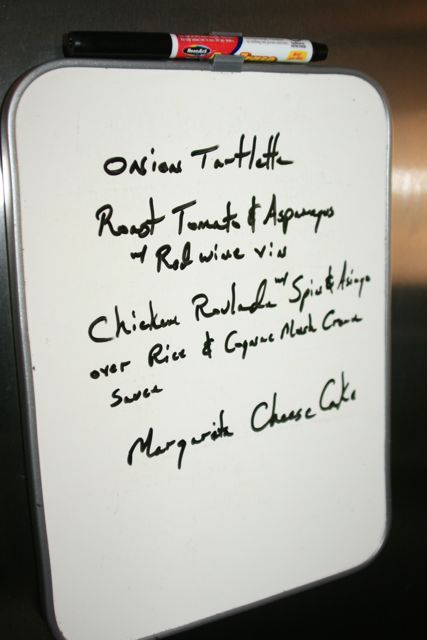 Onion Tartlette
Roast Tomato & Asparagus
w/ Red wine vin
Chicken Roulade w/ Spin & Asiago
over Rice & Cognac Mush Cream
Sauce
Margarita Cheese Cake